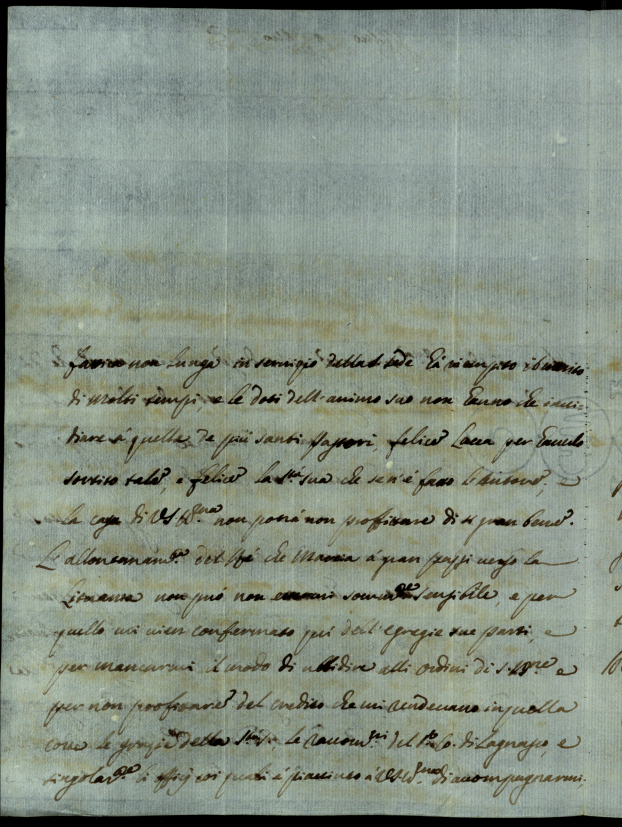 non lunga in servigio della S. Sede hà riempito il
di molti tempi, e le doti dell'animo suo non hanno che invi-
diare à quelle de più santi Pastori, felice per haverlo
sortito tale, e felice la S.tà sua che se n'è fatto l'Autore, e
la casa di V.S. Ill.ma non potrà non profittare di sì gran bene.
L'allontanam.to del Rè che marcia à gran passi verso la
Lituania non può non somm.te sensibile, e per
quello mi vien confermato più dell'egregie sue parti, e
per mancarmi il modo di ubbidire alli ordini di S. e
per non profittare del credito che mi rendevano in quella
corte le grazie della le raccom.ni del Co. di Lagnasco, e
singolar.te li ufficj coi quali è piacciuto à V.S. Ill.ma di accompagnarmi,